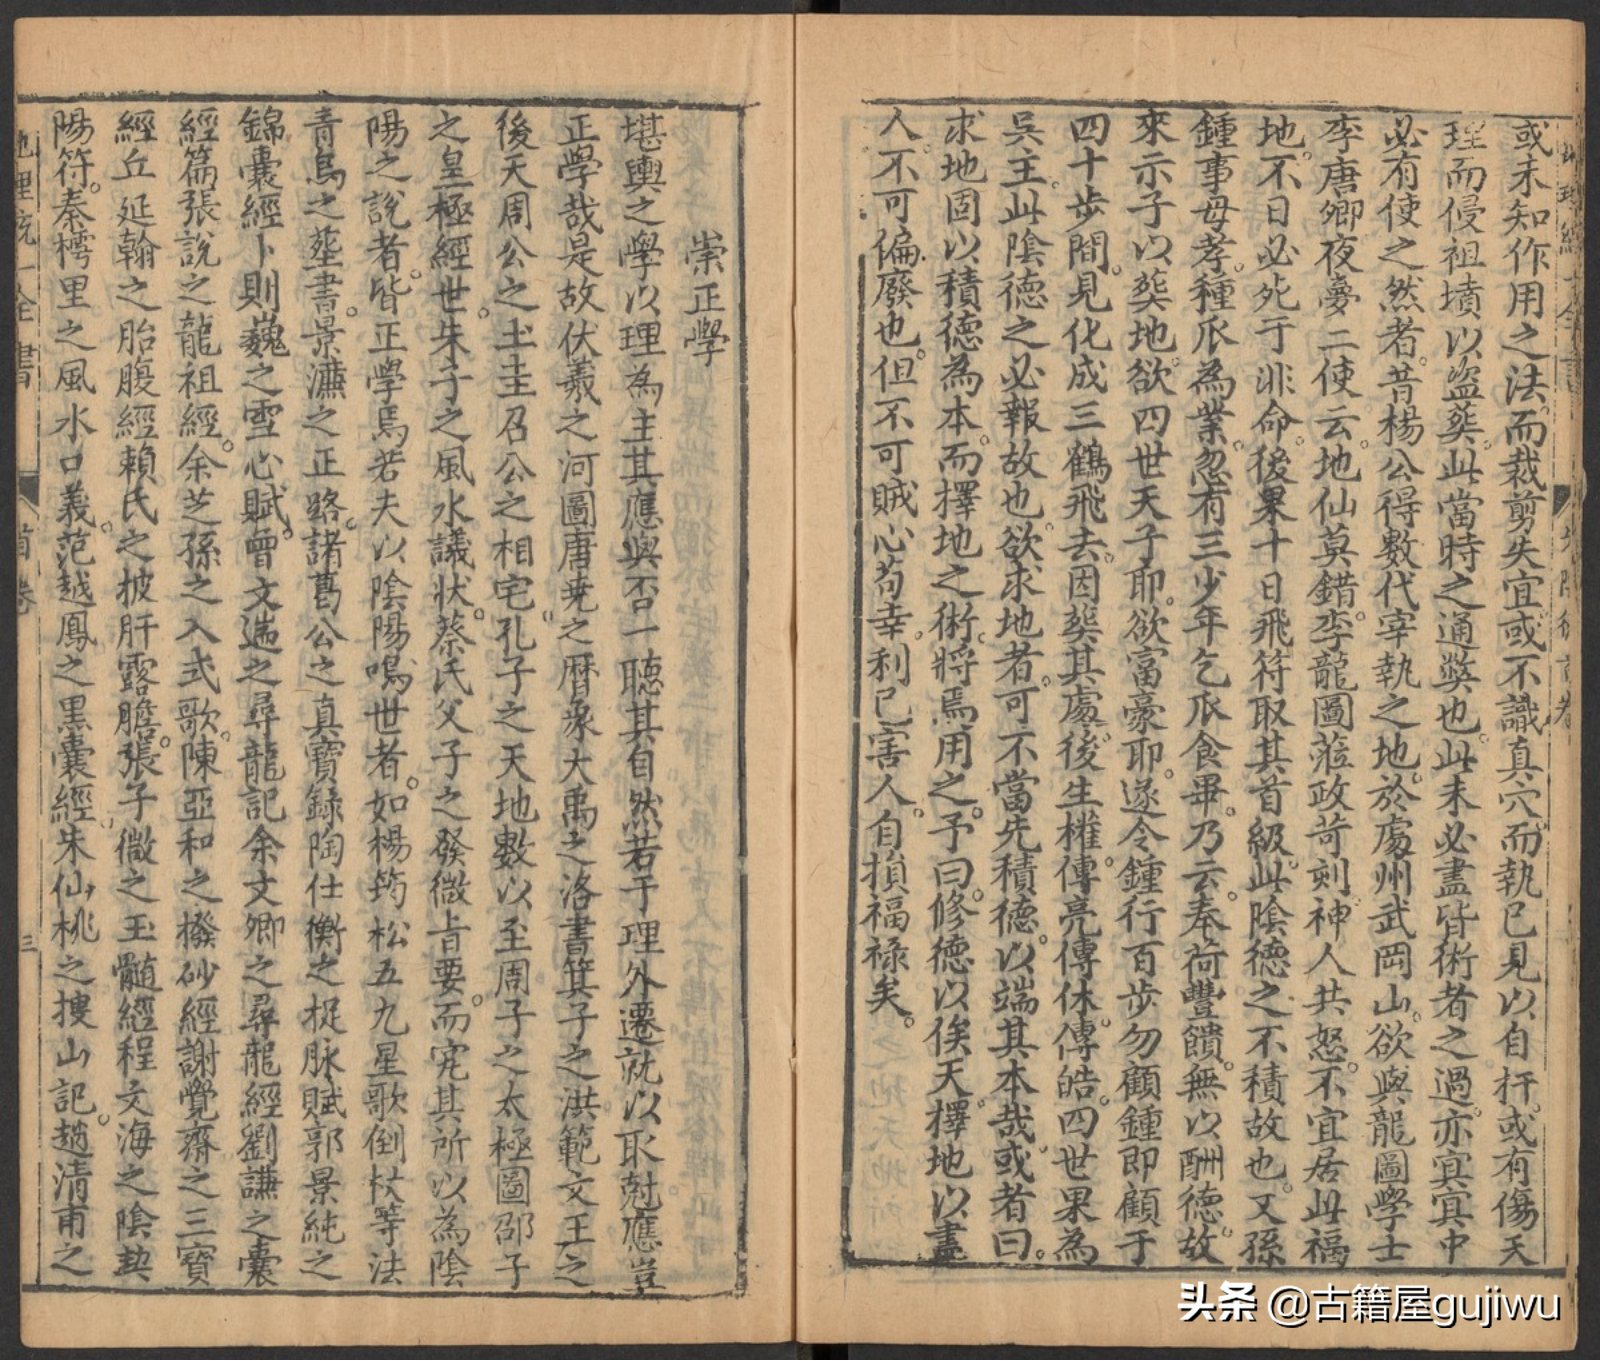 或未知作用之法而裁剪失宜或不識真穴而執已見以自扞或有傷天
理而侵祖墳以盜葬此當時之通獘也此未必盡皆術者之過亦冥冥中
必有使之然者昔楊公得數代宰執之地於處州武岡山欲與龍圖學士
李唐卿夜夢二使云地仙莫錯李龍圖蒞政苛刻神人共怒不宜居此福
地不日必死于非命後果十日飛符取其首級此陰德之不積故也又孫
鍾事母孝種瓜為業忽有三少年乞瓜食畢乃云奉荷豐饋無以酬德故
來示子以葬地欲四世天子耶欲富豪耶遂令鍾行百步勿顧鍾即顧于
四十步間見化成三鶴飛去因葬其處後生權傳亮傳休傳皓四世果為
吳主此陰德之必報故也欲求地者可不當先積德以端其本哉或者曰
求地固以積德為本而擇地之術將焉用之予曰修德以俟天擇地以盡
人不可偏廢也但不可賊心苟幸利已害人自損福祿矣
崇正學
堪輿之學以理為主其應與否一聽其自然若于理外遷就以取尅應豈
正學哉是故伏羲之河圖唐堯之曆象大禹之洛書箕子之洪範文王之
後天周公之土圭召公之相宅孔子之天地數以至周子之太極圖邵子
之皇極經世朱子之風水議狀蔡氏父子之發微旨要而究其所以為陰
陽之說者皆正學焉若夫以陰陽鳴世者如楊筠松五九星歌倒杖等法
青烏之葬書景濂之正路諸葛公之真寶錄陶仕衡之捉脉賦郭景純之
錦囊經卜則巍之雪心賦曾文遄之尋龍記余文卿之尋龍經劉謙之囊
經篇張說之龍祖經余芝孫之入式歌陳亞和之撥砂經謝覺齋之三寶
經丘延翰之胎腹經賴氏之披肝露膽張子微之玉髓經程文海之陰契
陽符秦樗里之風水口義范越鳳之黑囊經朱仙桃之摟山記趙清甫之
地理統一全書
首卷
三
头条 @古籍屋gujiwu